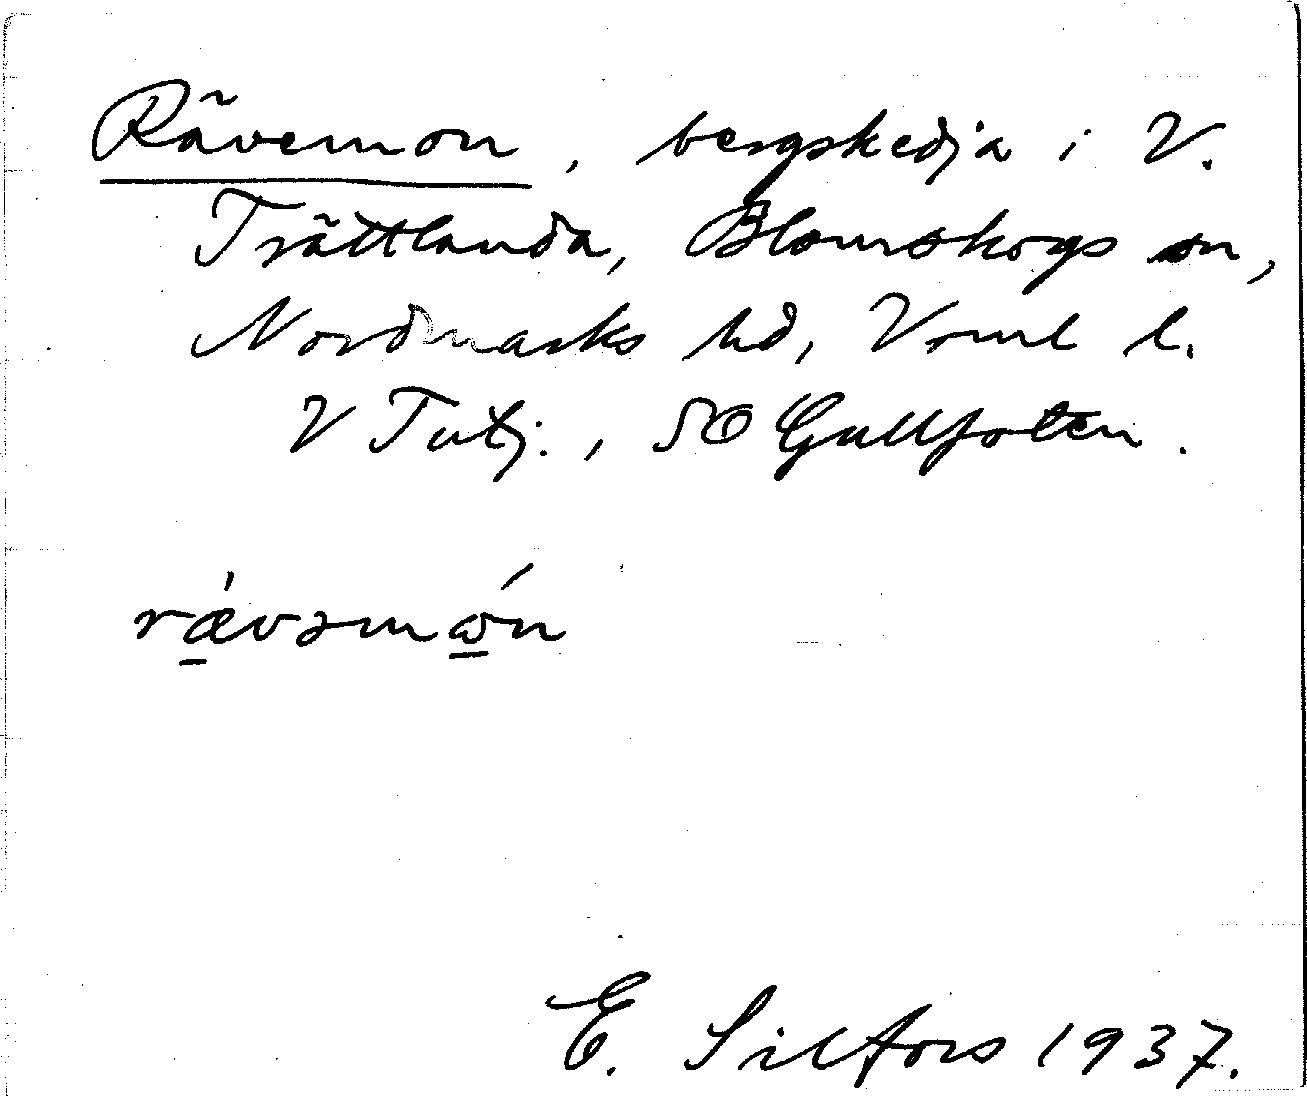 Rävemon, bergskedja i V.
Trättlanda, Blomskogs sn,
Nordmarks hd, Vrml l.
V Tutj., SO Gullfoten.
rǽvəmώ̲n
E. Silfors 1937.